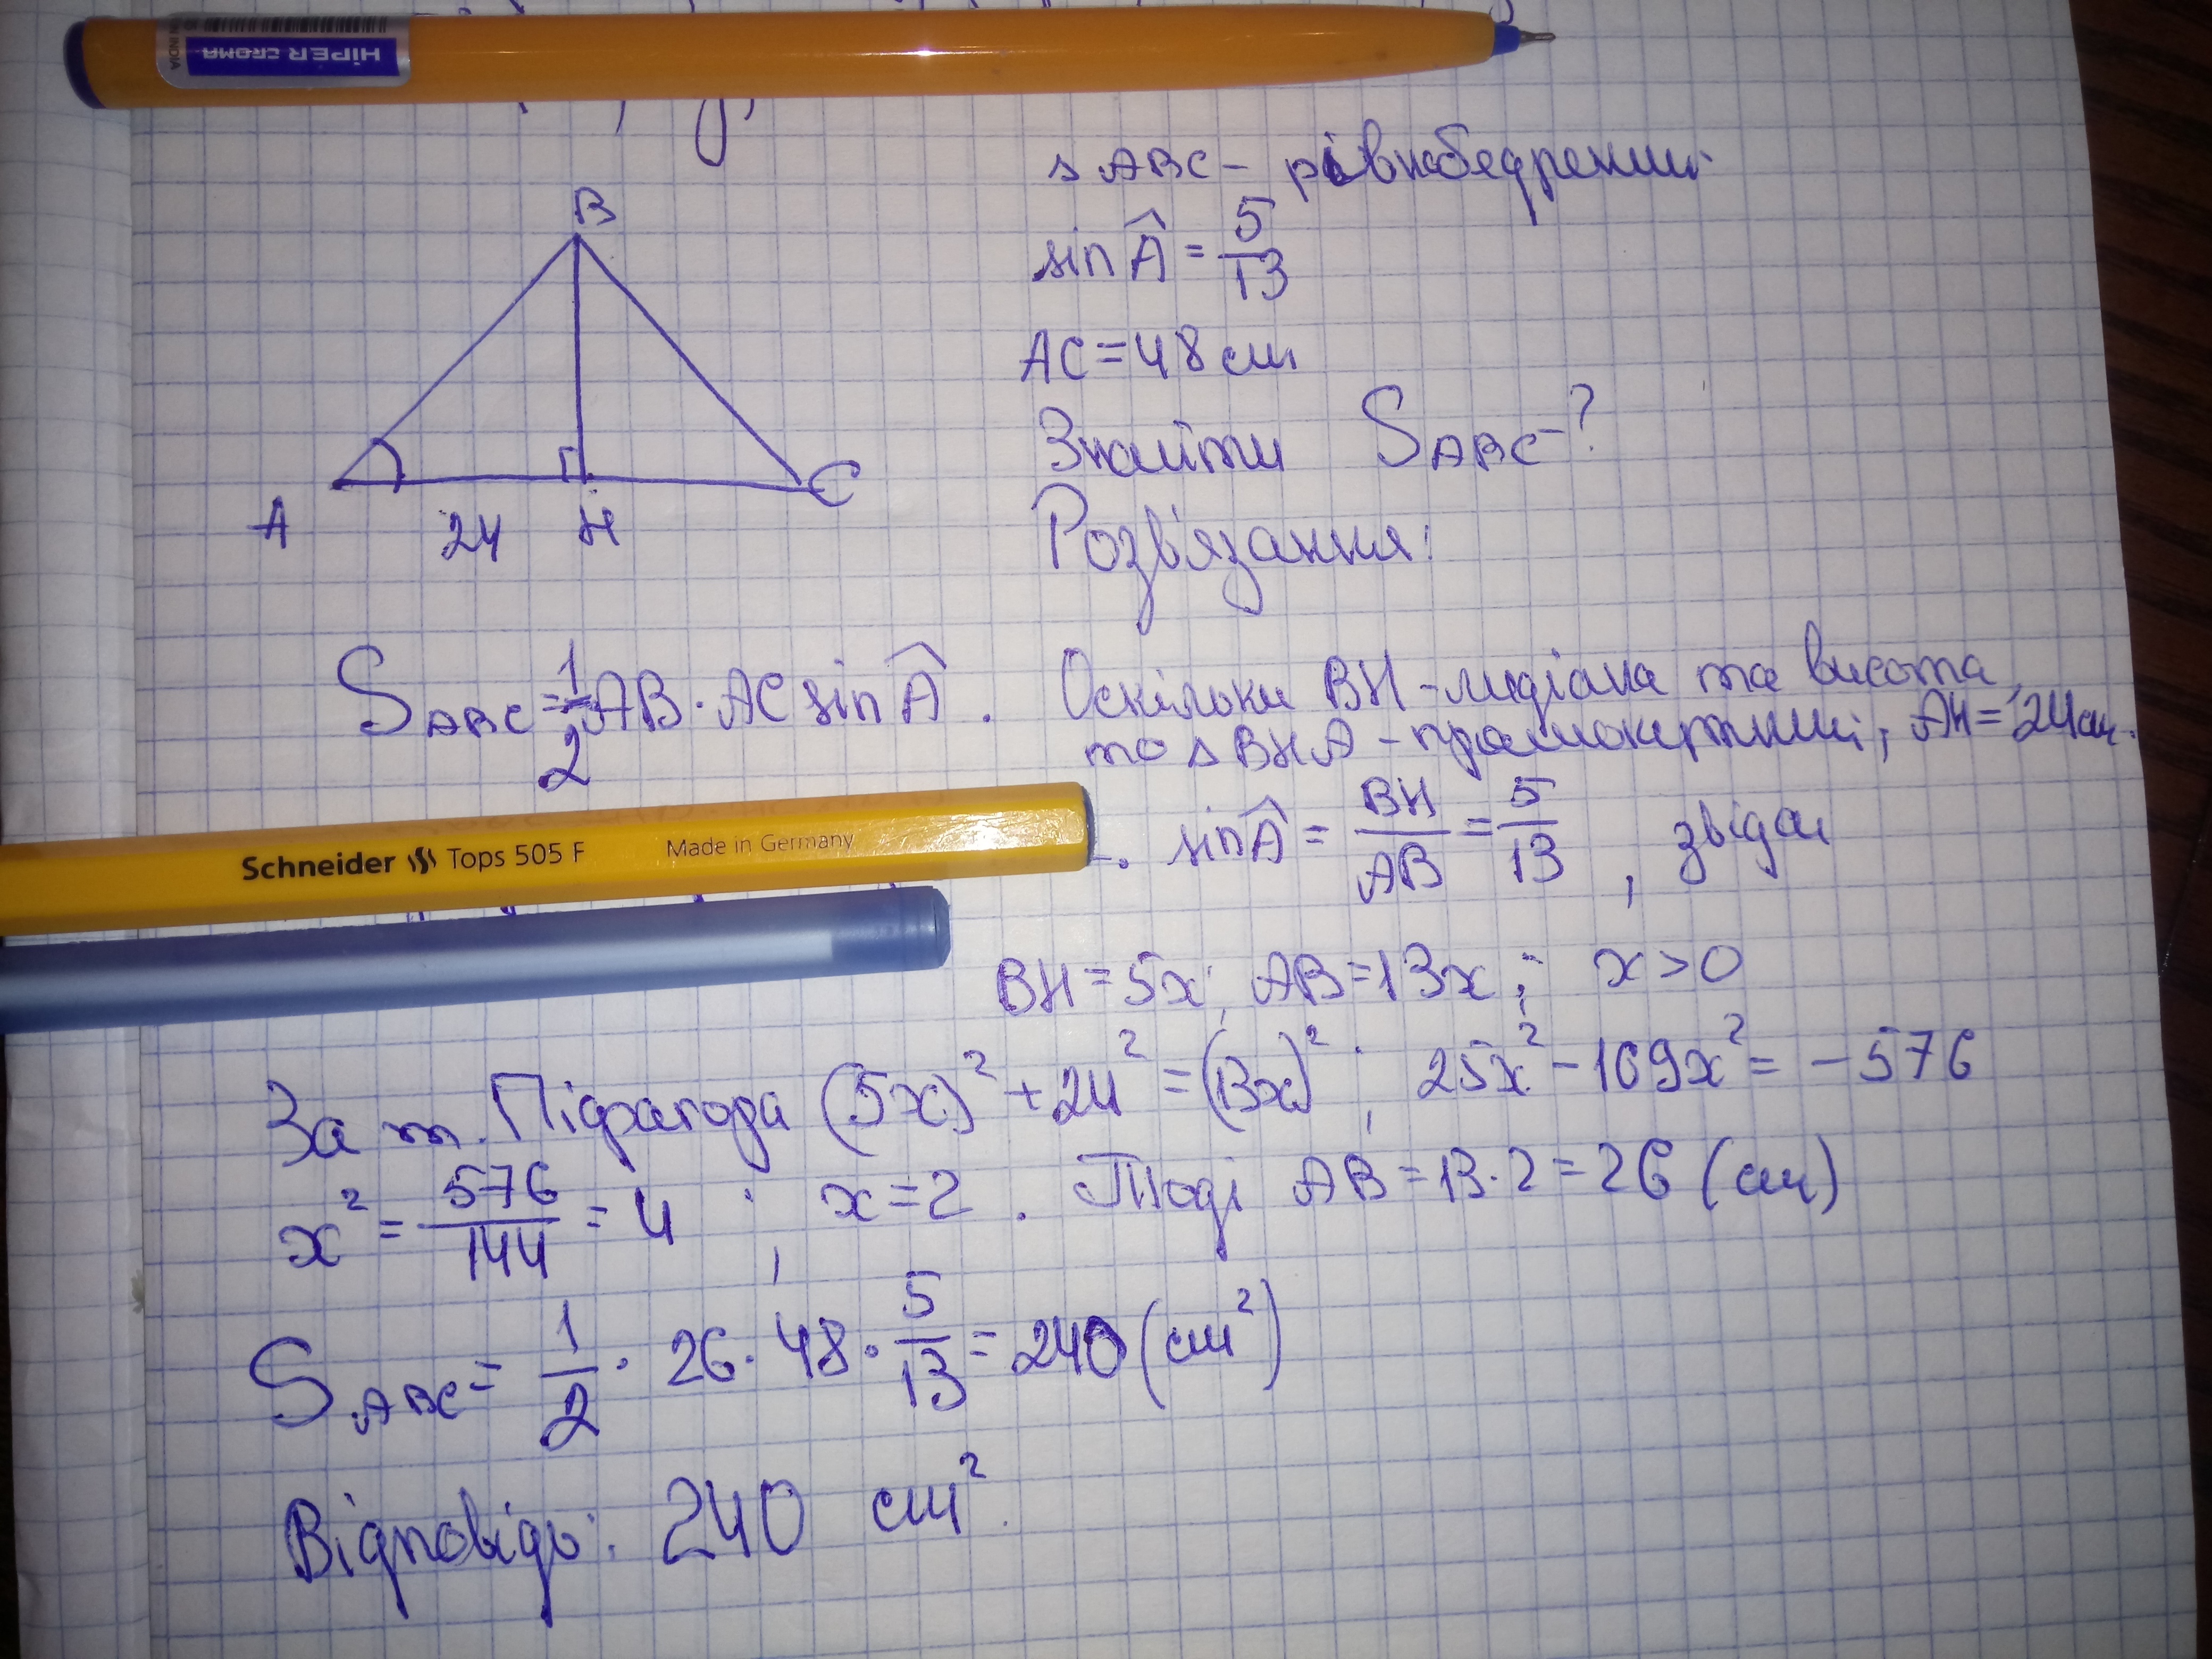 HIPER CROMA
IN INDIA
B
A 24 H C
△ABC - рівнобедрений
sin A = 5/13
AC = 48 см
Знайти S ABC - ?
Розв'язання:
S ABC = 1/2 AB · AC sin A . Оскільки BH - медіана та висота,
то △BHA - прямокутний; AH = 24 см.
Schneider Tops 505 F Made in Germany
. sin A = BH/AB = 5/13 , звідси
BH = 5x; AB = 13x; x > 0
За т. Піфагора (5x)² + 24² = (13x)²; 25x² - 169x² = -576
x² = 576/144 = 4 ; x = 2 . Тоді AB = 13·2 = 26 (см)
S ABC = 1/2 · 26 · 48 · 5/13 = 240 (см²)
Відповідь: 240 см².